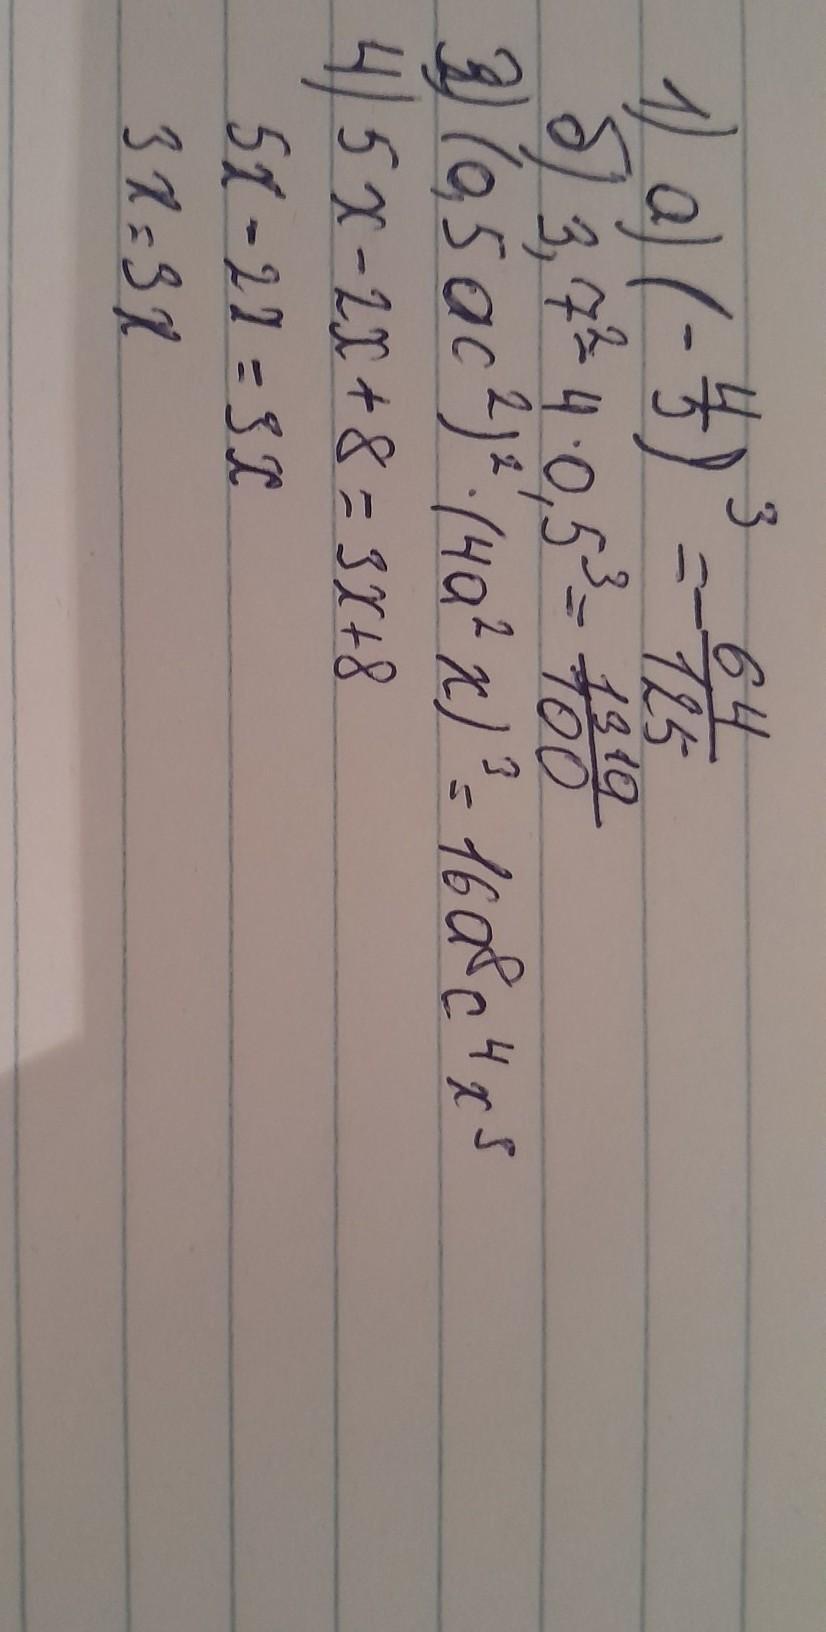 1) а) (-4/5)³ = -64/125
б) 3,7² - 4·0,5³ = 1319/100
3) (0,5ac²)²·(4a²x)³ = 16a⁸c⁴x³
4) 5x - 2x + 8 = 3x + 8
5x - 2x = 3x
3x = 3x